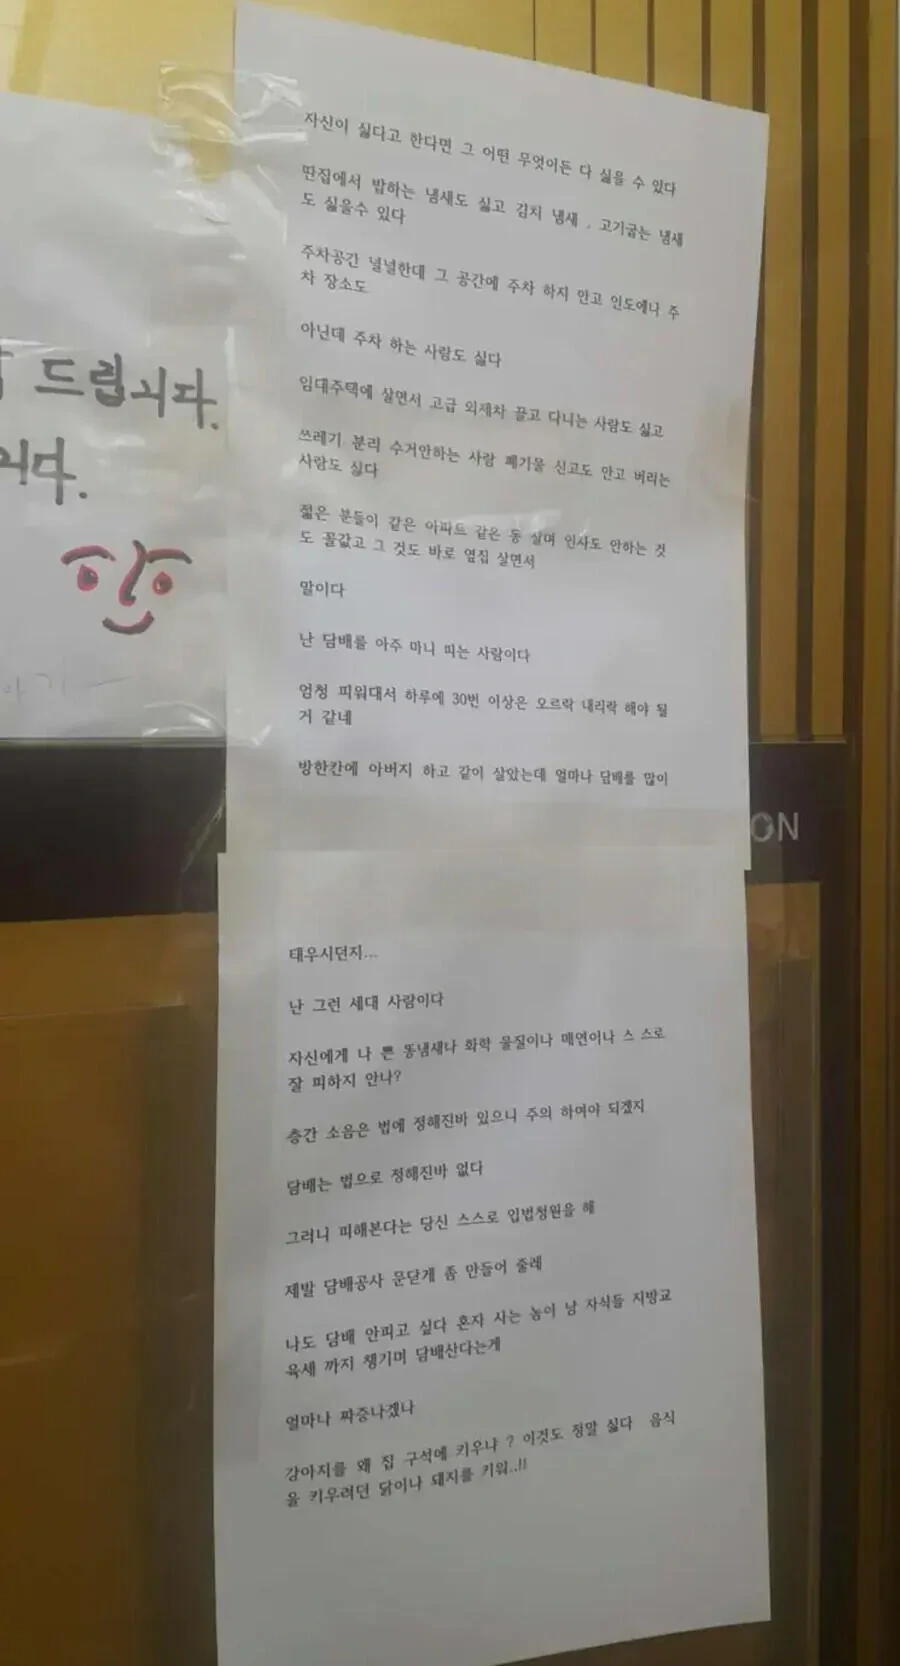 드립니다.
니다.
자신이 싫다고 한다면 그 어떤 무엇이든 다 싫을 수 있다
딴집에서 밥하는 냄새도 싫고 김치 냄새 , 고기굽는 냄새
도 싫을수 있다
주차공간 널널한대 그 공간에 주차 하지 안고 인도에나 주
차 장소도
아닌데 주차 하는 사람도 싫다
임대주택에 살면서 고급 외제차 끌고 다니는 사람도 싫고
쓰레기 분리 수거안하는 사람 폐기물 신고도 안고 버리는
사람도 싫다
젊은 분들이 같은 아파트 같은 동 살며 인사도 안하는 것
도 꼴값고 그 것도 바로 옆집 살면서
말이다
난 담배를 아주 마니 띠는 사람이다
엄청 피워대서 하루에 30번 이상은 오르락 내리락 해야 될
거 같네
방한칸에 아버지 하고 같이 살았는데 얼마나 담배를 많이
ON
태우시던지...
난 그런 세대 사람이다
자신에게 나 쁜 똥냄새나 화학 물질이나 매연이나 스 스로
잘 피하지 안나?
층간 소음은 법에 정해진바 있으니 주의 하여야 되겠지
담배는 법으로 정해진바 없다
그러니 피해본다는 당신 스스로 입법청원을 해
제발 담배공사 문닫게 좀 만들어 줄레
나도 담배 안피고 싶다 혼자 사는 놈이 남 자식들 지방교
육세 까지 챙기며 담배산다는게
얼마나 짜증나겠나
강아지를 왜 집 구석에 키우냐 ? 이것도 정말 싫다 음식
을 키우려던 닭이나 돼지를 키워..!!